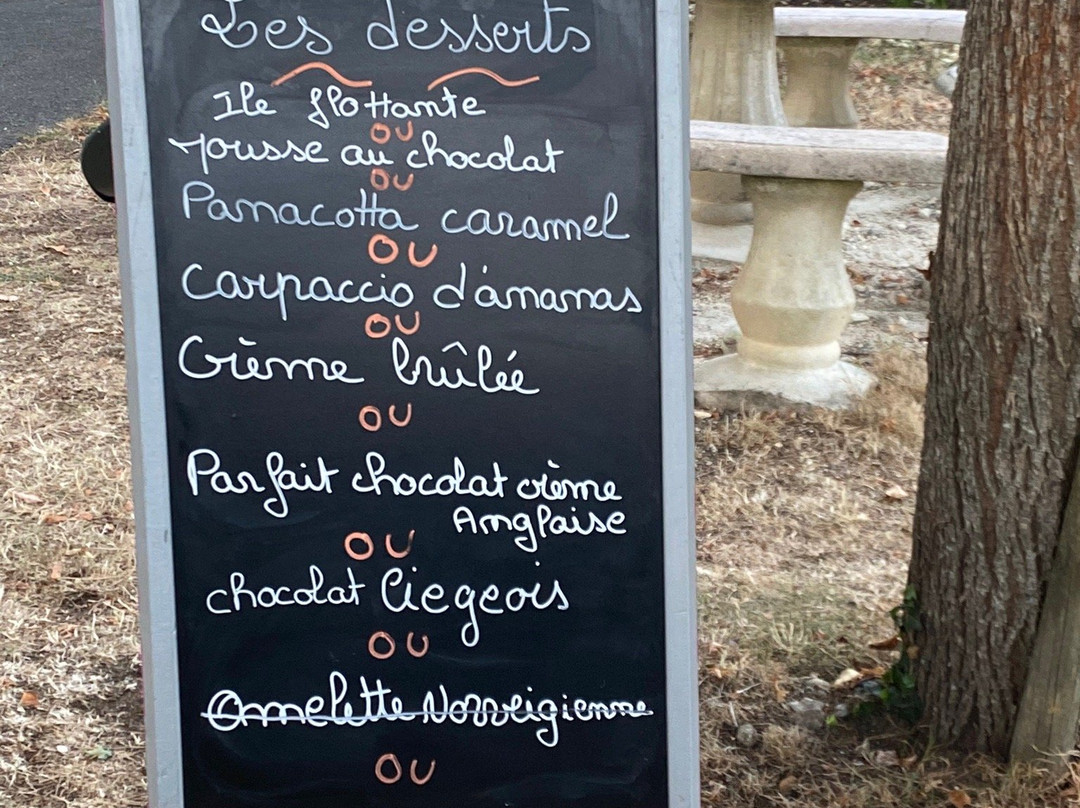 Les desserts
Ile flottante
ou
mousse au chocolat
ou
Panacotta caramel
ou
Carpaccio d'ananas
ou
Crème brûlée
ou
Parfait chocolat crème
Anglaise
ou
chocolat liegeois
ou
Omelette Norveigienne
ou